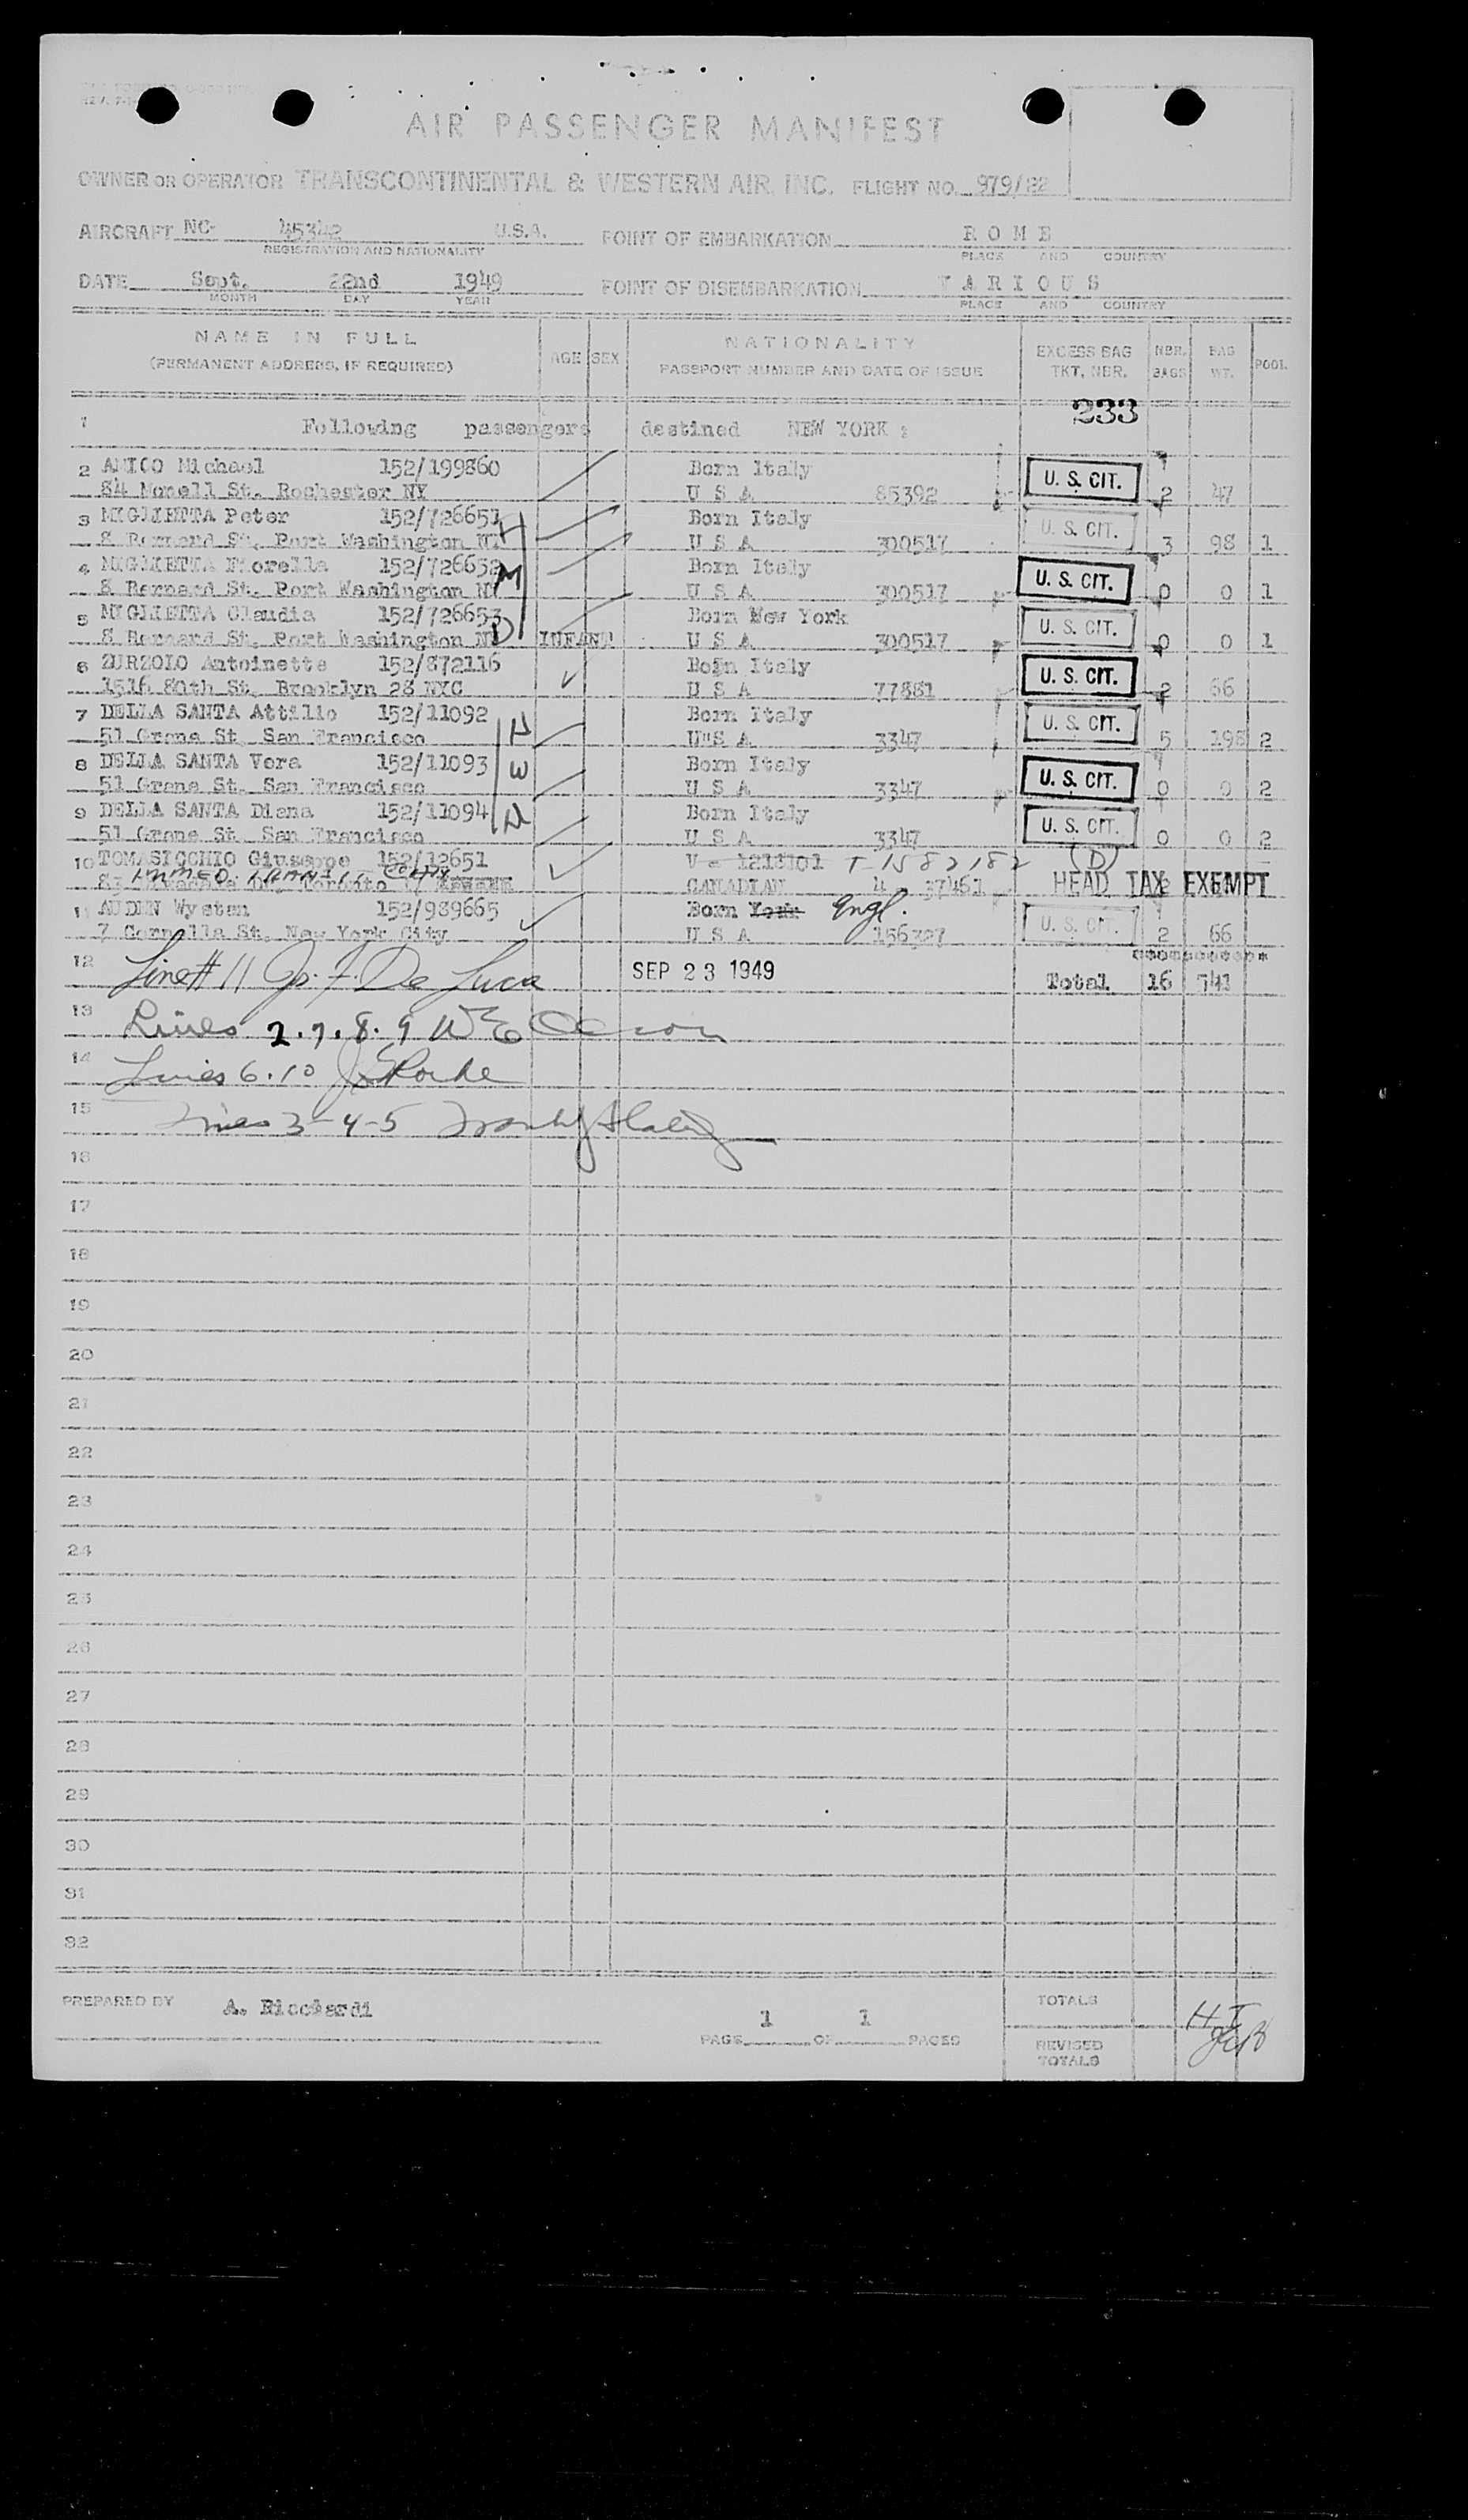 AIR PASSENGER MANIFEST
OWNER OR OPERATOR TRANSCONTINENTAL & WESTERN AIR, INC. FLIGHT NO. 979/22
AIRCRAFT NC- 45342 U.S.A. POINT OF EMBARKATION R O M E
REGISTRATION AND NATIONALITY PLACE AND COUNTRY
DATE Sept. 22nd 1949 POINT OF DISEMBARKATION V A R I O U S
MONTH DAY YEAR PLACE AND COUNTRY
NAME IN FULL AGE SEX NATIONALITY EXCESS BAG NBR. BAG POOL
(PERMANENT ADDRESS, IF REQUIRED) PASSPORT NUMBER AND DATE OF ISSUE TKT. NBR. BAGS WT.
233
1 Following passengers destined NEW YORK :
2 AMICO Michael 152/199860 Born Italy U. S. CIT.
84 St. Rochester NY U S A 85392 2 47
3 MIGLIETTA Peter 152/726651 H Born Italy U. S. CIT.
8 Bernard St. Port Washington NY U S A 300517 3 98 1
4 MIGLIETTA Fiorella 152/726652 M Born Italy U. S. CIT.
8 Bernard St. Port Washington NY U S A 300517 0 0 1
5 MIGLIETTA Claudia 152/726653 D Born New York U. S. CIT.
8 Bernard St. Port Washington NY INFANT U S A 300517 0 0 1
6 ZURZOLO Antoinette 152/872116 Born Italy U. S. CIT.
1516 80th St. Brooklyn 28 NYC U S A 77881 2 66
7 DELLA SANTA Attilio 152/11092 Born Italy U. S. CIT.
51 St. San Francisco U"S A 3347 5 198 2
8 DELLA SANTA Vera 152/11093 Born Italy U. S. CIT.
51 St. San Francisco U S A 3347 0 0 2
9 DELLA SANTA Diana 152/11094 Born Italy U. S. CIT.
51 St. San Francisco U S A 3347 0 0 2
10 TOMASICCHIO Giuseppe 152/12651 V - 1218101 T-1582182 (D)
IMMED. TRANSIT
Toronto CANADIAN 4 37461 HEAD TAX EXEMPT
11 AUDEN Wystan 152/989665 Born York Engl. U. S. CIT.
7 Cornelia St. New York City U S A 156327 2 66
***********
12 Line # 11 Jo. F. De Luca SEP 23 1949 Total 16 541
13 Lines 2.7.8.9
14 Lines 6.10
15 Lines 3-4-5
16
17
18
19
20
21
22
23
24
25
26
27
28
29
30
31
32
PREPARED BY A. Ricciardi PAGE 1 OF 1 PAGES TOTALS
REVISED TOTALS